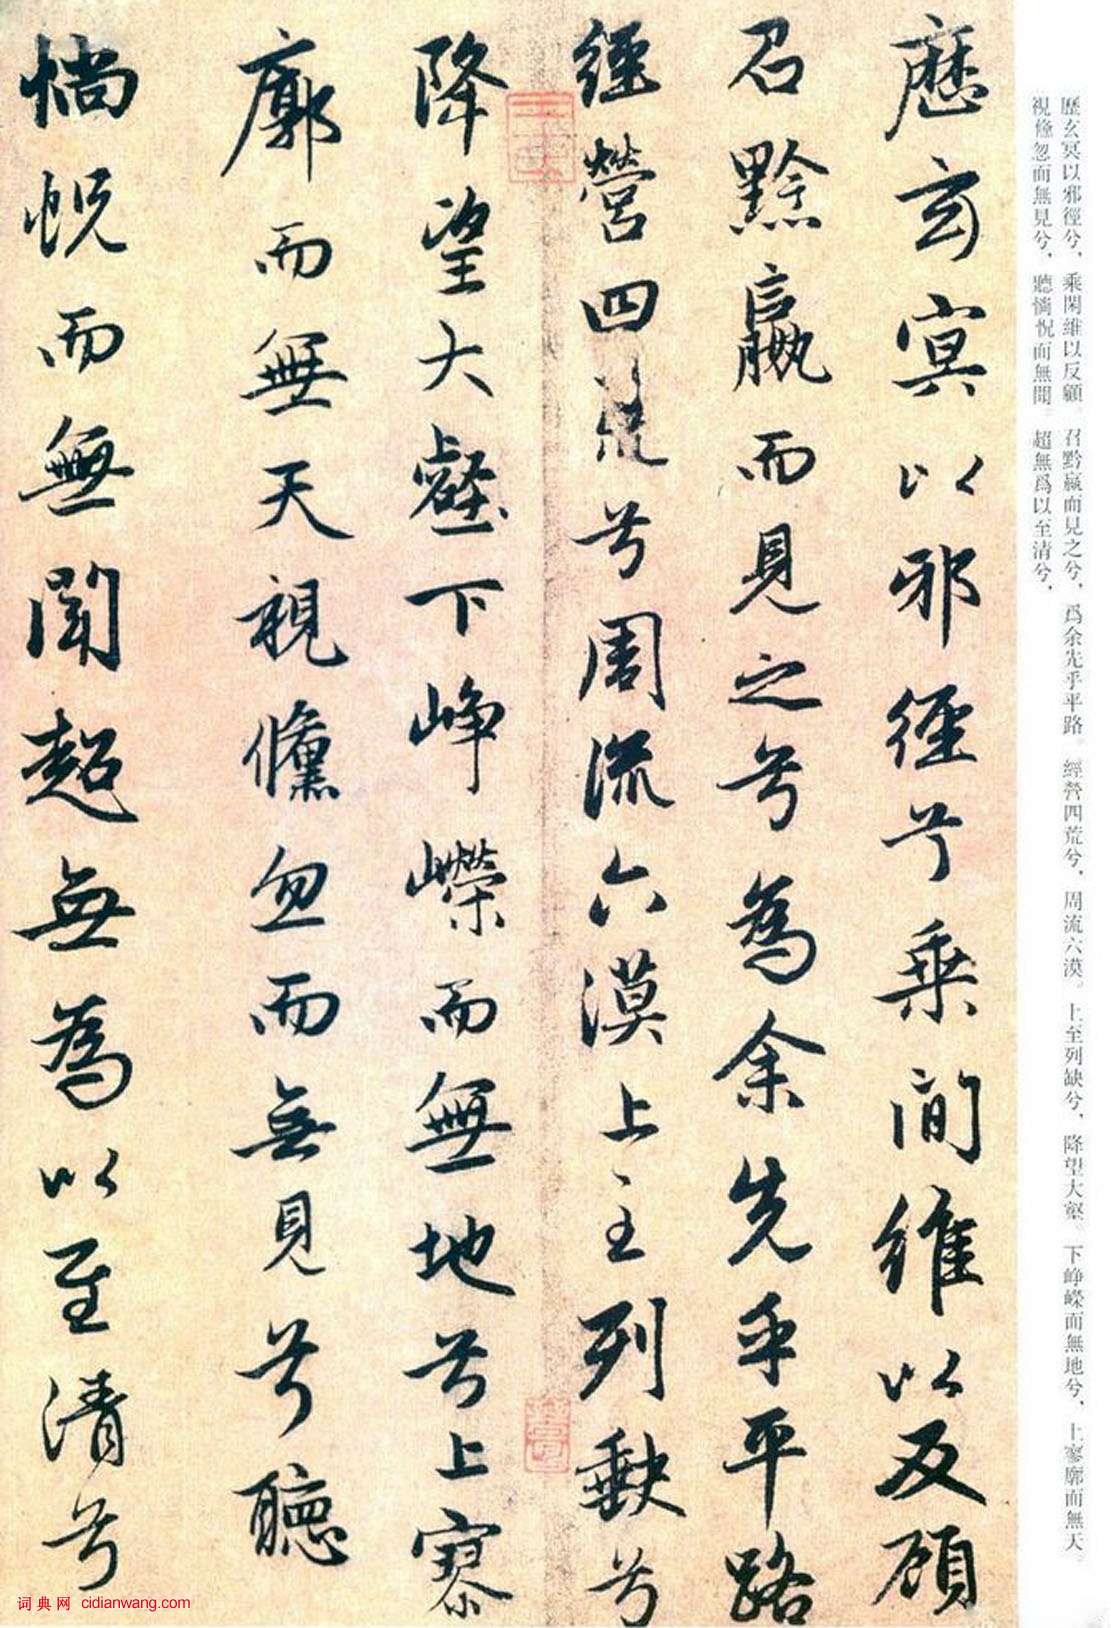 歷玄冥以邪徑兮，乘閑維以反顧。召黔嬴而見之兮，爲余先乎平路。經營四荒兮，周流六漠。上至列缺兮，降望大壑。下崢嶸而無地兮，上寥廓而無天。
視倏忽而無見兮，聽惝怳而無聞。超無爲以至清兮，
歷玄冥以邪徑兮乘間維以反顧
召黔嬴而見之兮為余先乎平路
經營四荒兮周流六漠上至列缺兮
降望大壑下崢嶸而無地兮上寥
廓而無天視儵忽而無見兮聽
惝怳而無聞超無為以至清兮
词典网 cidianwang.com